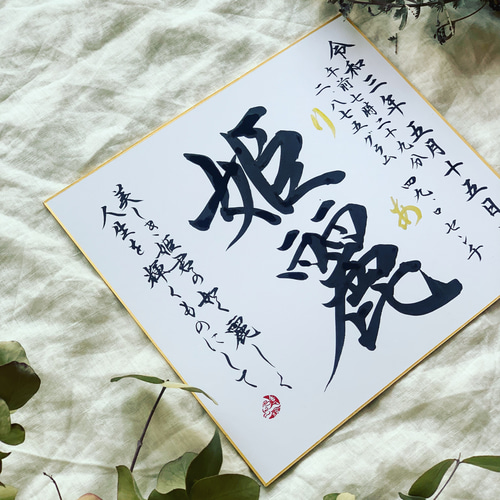 令和三年五月十五日
午前七時二十九分
二八七五グラム 四九.〇センチ
りあ
姫麗
美しき姫君の如く麗しく
人生を輝くものにして